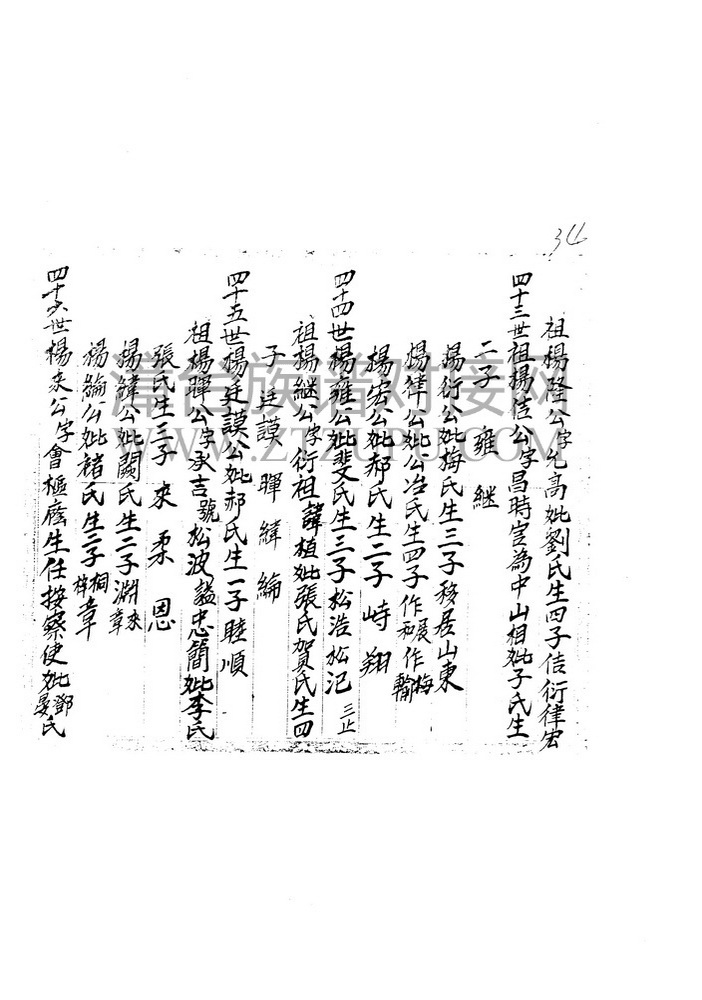 34
祖楊隆公字允高妣劉氏生四子佶衍律宏
四十三世祖楊佶公字昌時豈為中山相妣子氏生
二子 雍 継
楊衍公妣梅氏生三子移居山東
楊律公妣公冶氏生四子作展作梅和翰
楊宏公妣郝氏生二子 峙 翔
四十四世楊雍公妣斐氏生三子松浩松汜 三止
祖楊継公字衍祖諱植妣張氏賀氏生四
子 廷謨 暉 緯 綸
四十五世楊廷謨公妣郝氏生一子睦順
祖楊暉公字承吉號松波謚忠簡妣李氏
張氏生三子 来 柔 恩
楊緯公妣闞氏生二子淵来章
楊綸公妣褚氏生二子桐梓章
四十六世楊来公字會樞廕生任按察使妣鄧氏晏氏
韋台族谱对接网
WWW.ZTZUPU.COM